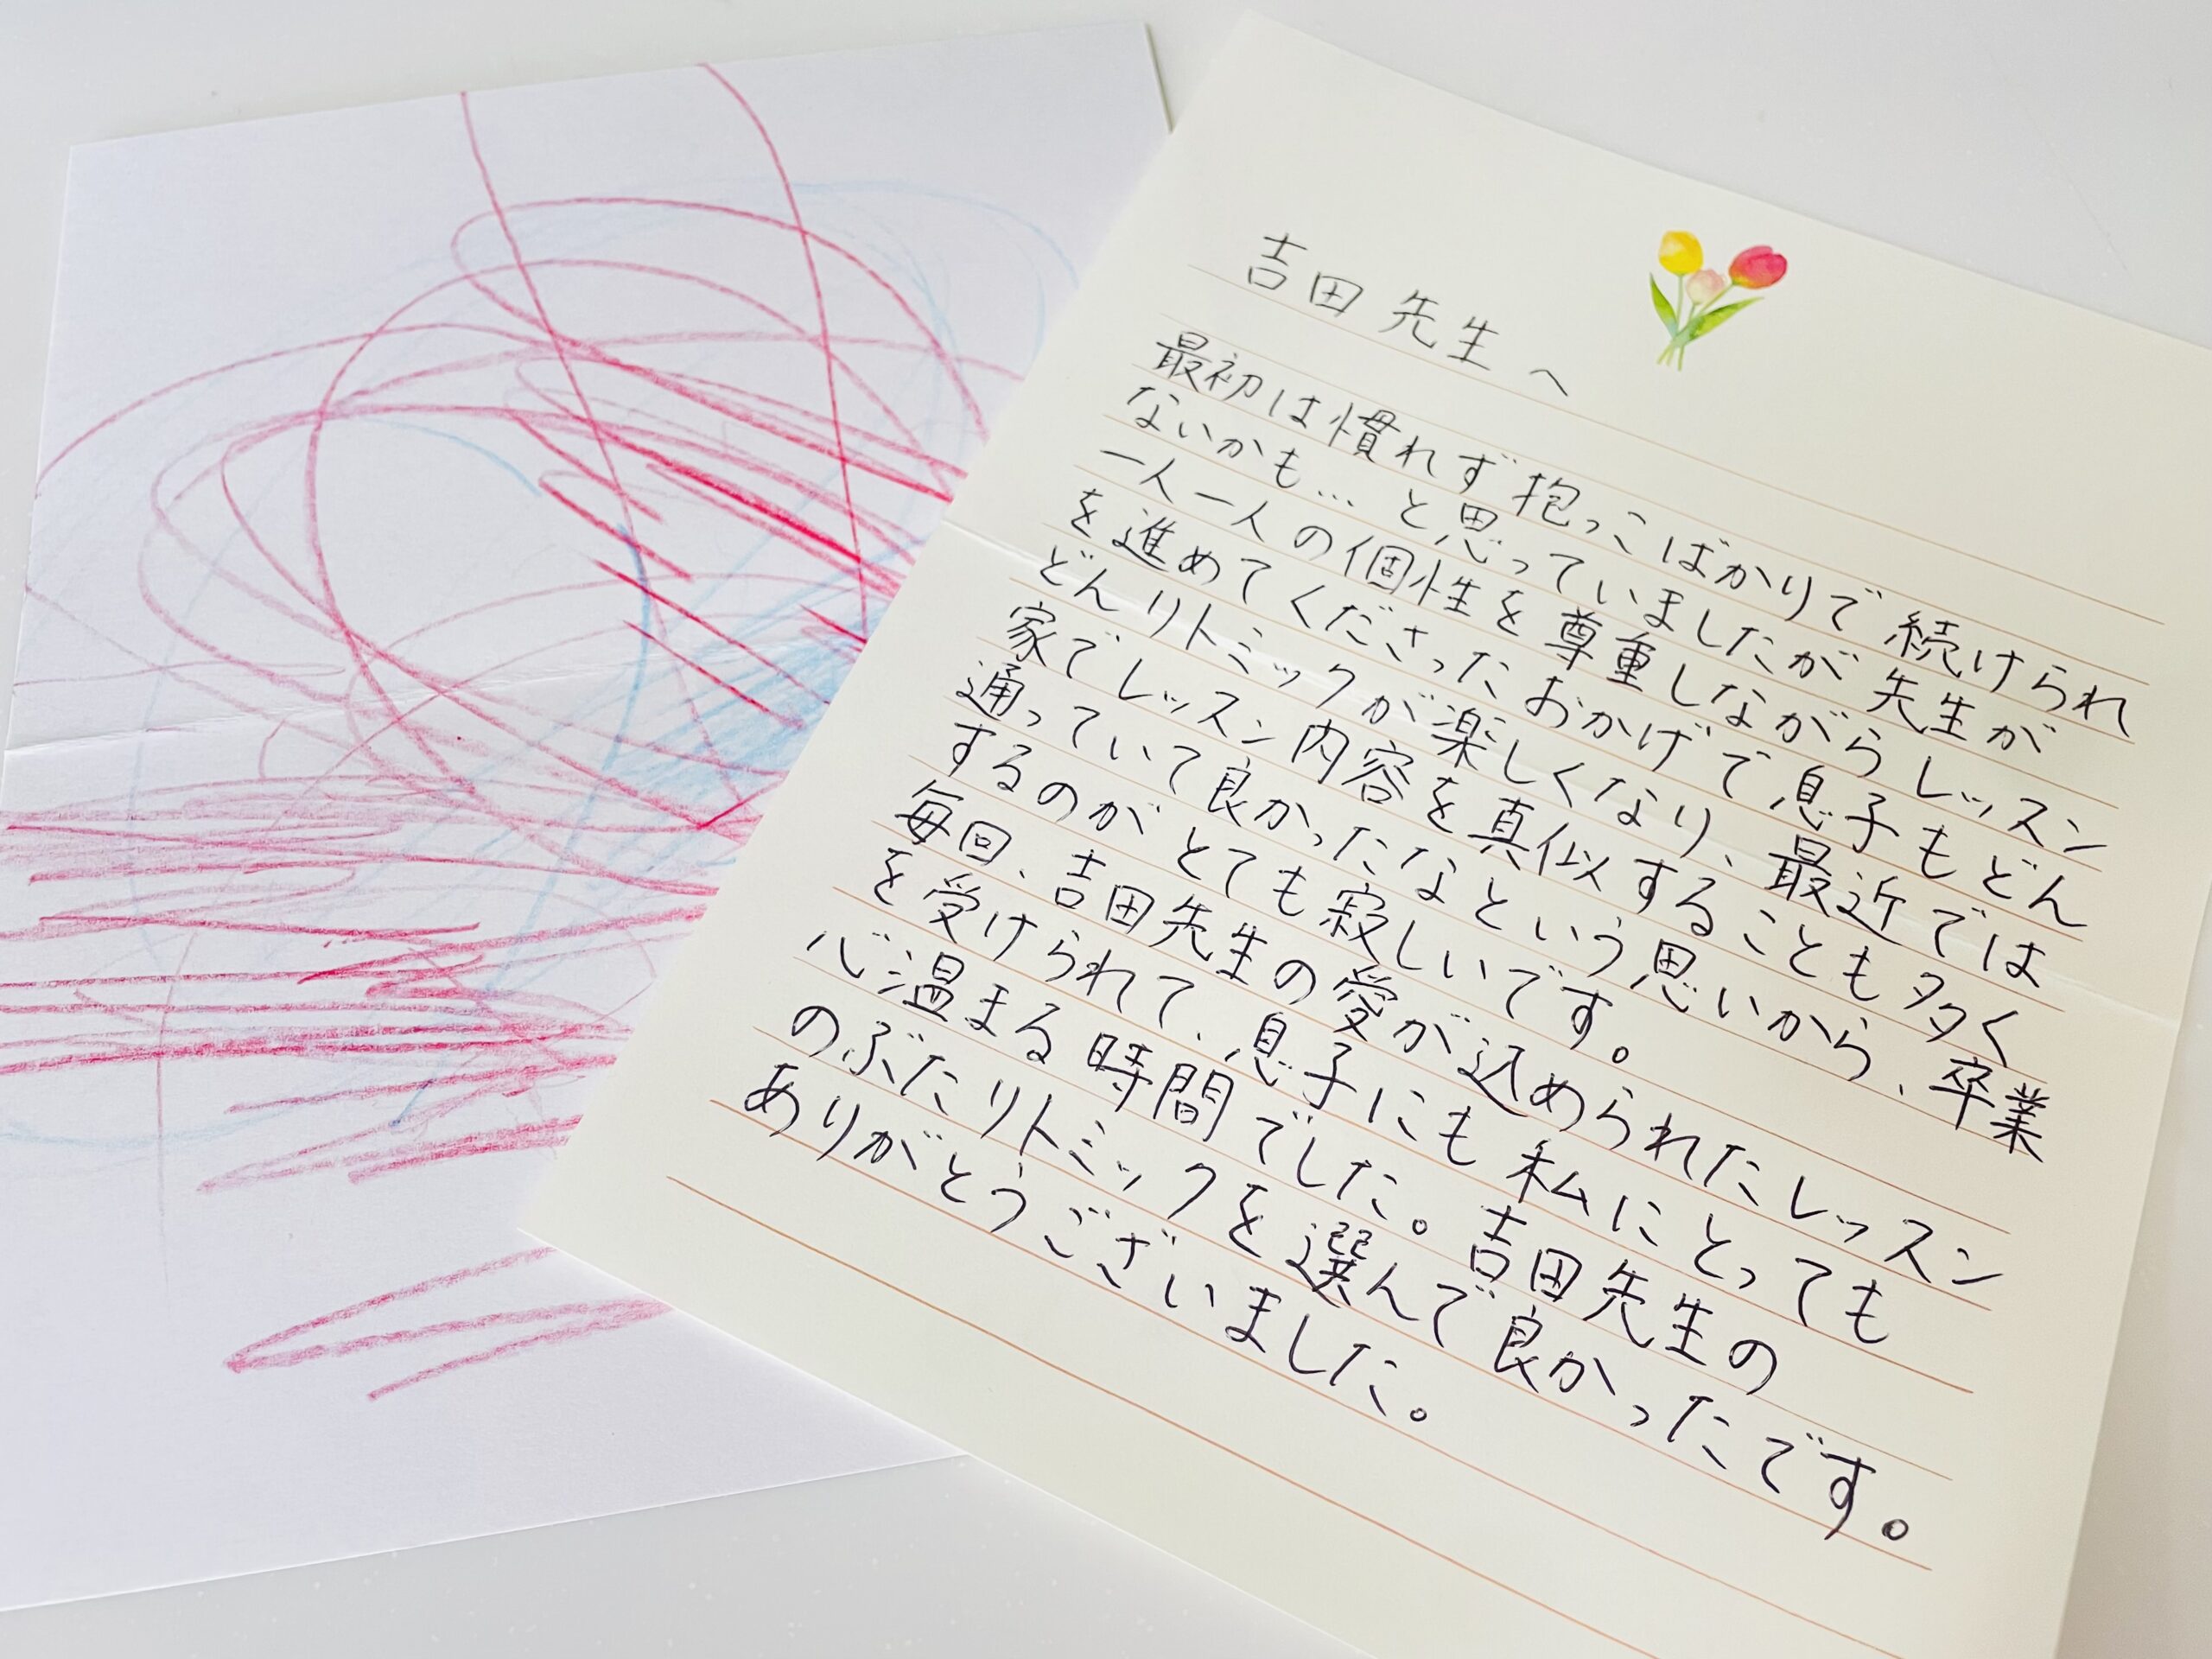 吉田先生へ
最初は慣れず抱っこばかりで続けられ
ないかも…と思っていましたが先生が
一人一人の個性を尊重しながらレッスン
を進めてくださったおかげで息子もどん
どんリトミックが楽しくなり、最近では
家でレッスン内容を真似することも多く
通っていて良かったなという思いから、卒業
するのがとても寂しいです。
毎回、吉田先生の愛が込められたレッスン
を受けられて、息子にも私にとっても
心温まる時間でした。吉田先生の
のぶたリトミックを選んで良かったです。
ありがとうございました。